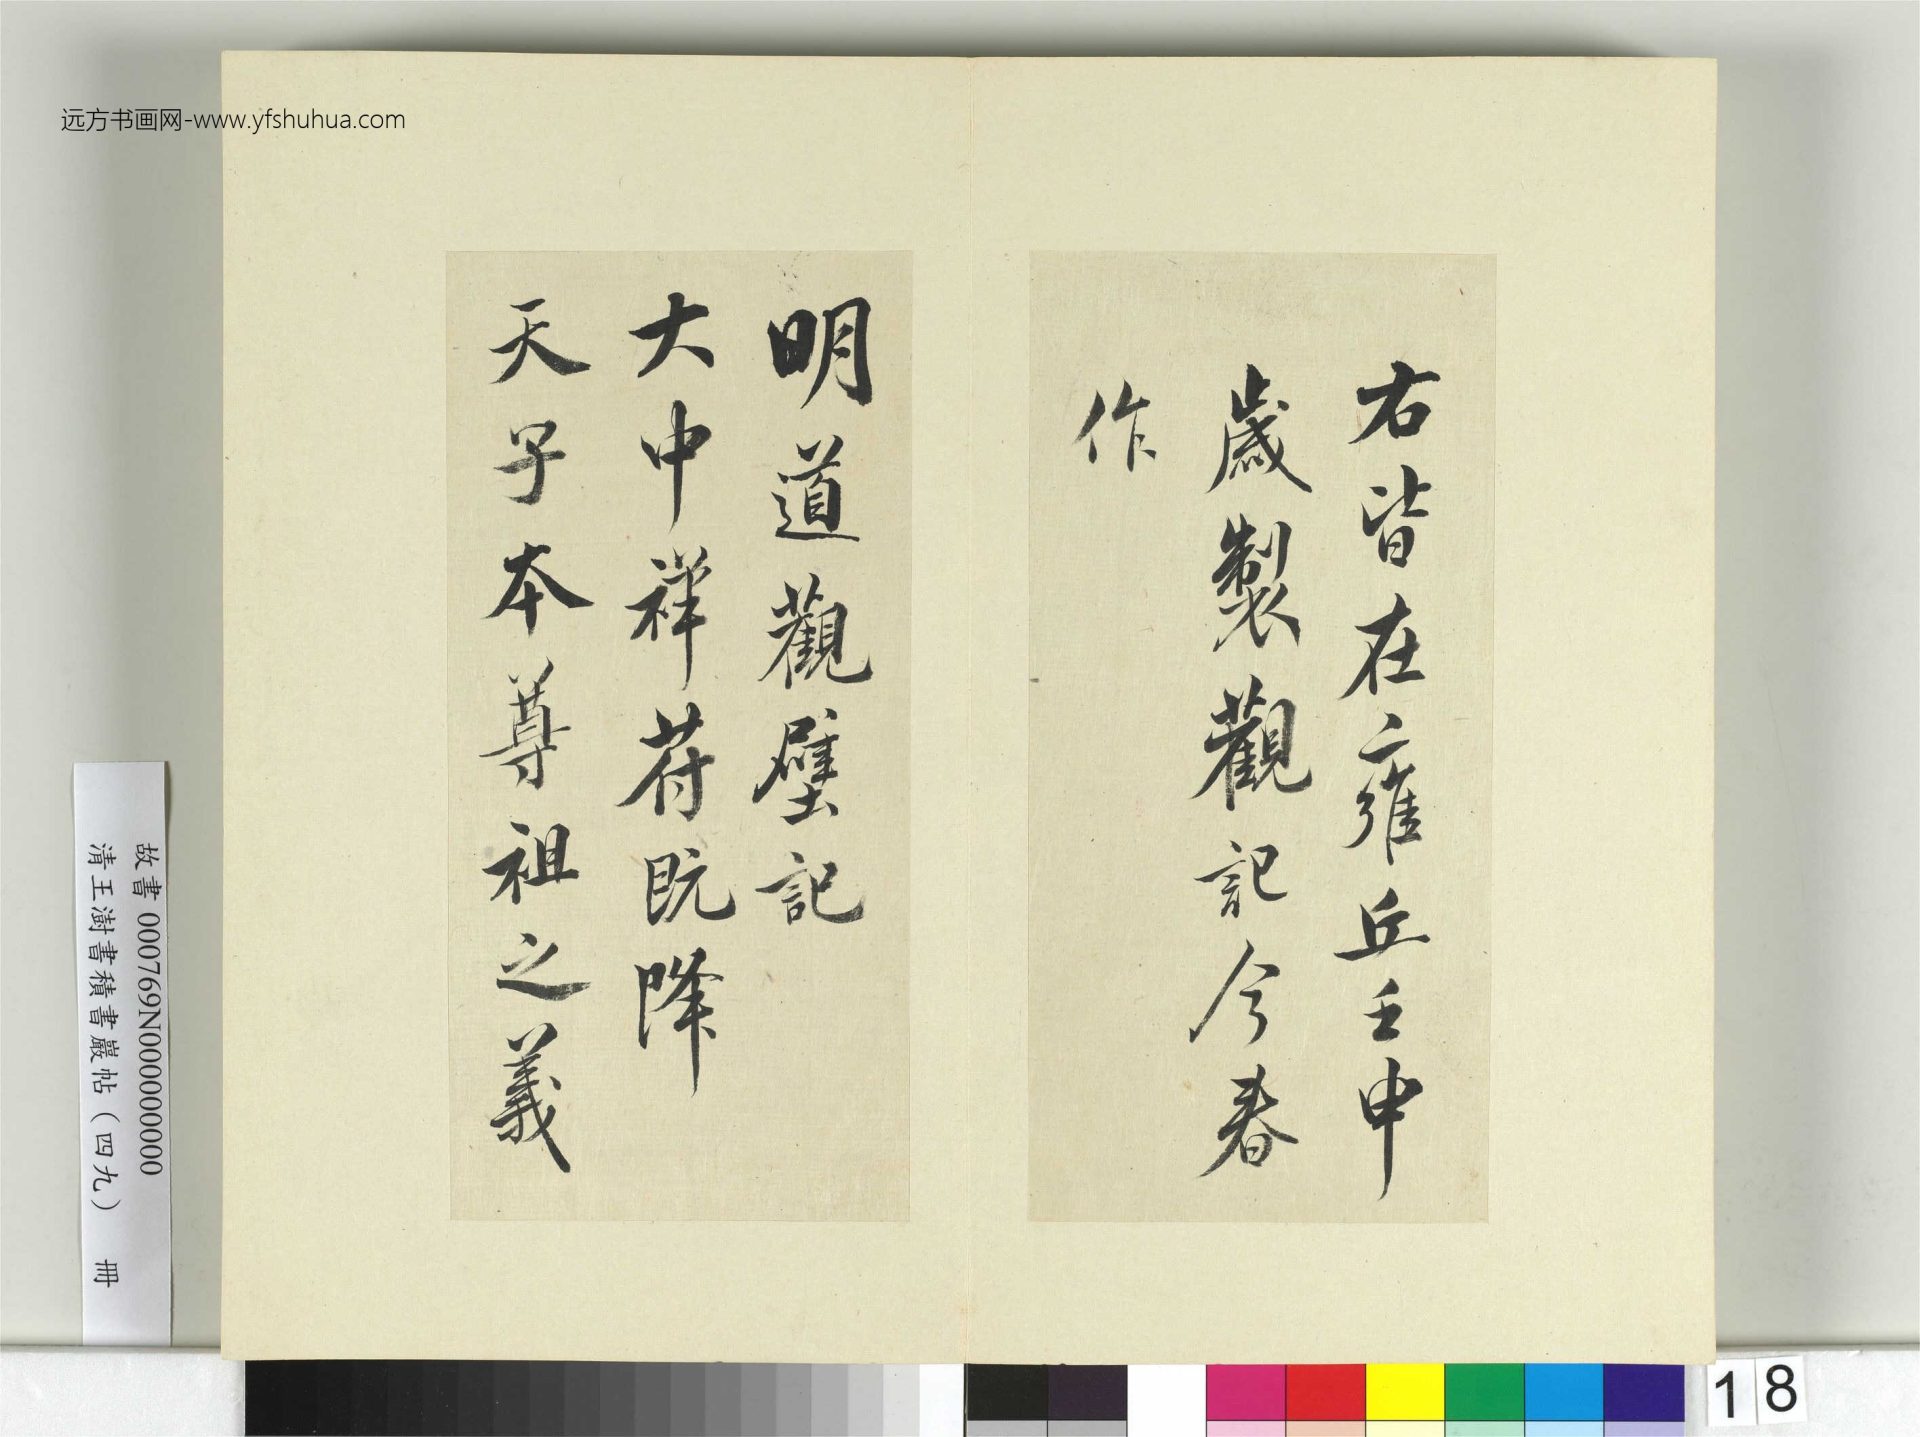 远方书画网-www.yfshuhua.com
右皆在雍丘壬申
歲製觀記今春
作
明道觀壁記
大中祥苻既降
天子本尊祖之義
故書000769N000000000
清王澍書積書巖帖（四九） 冊
18